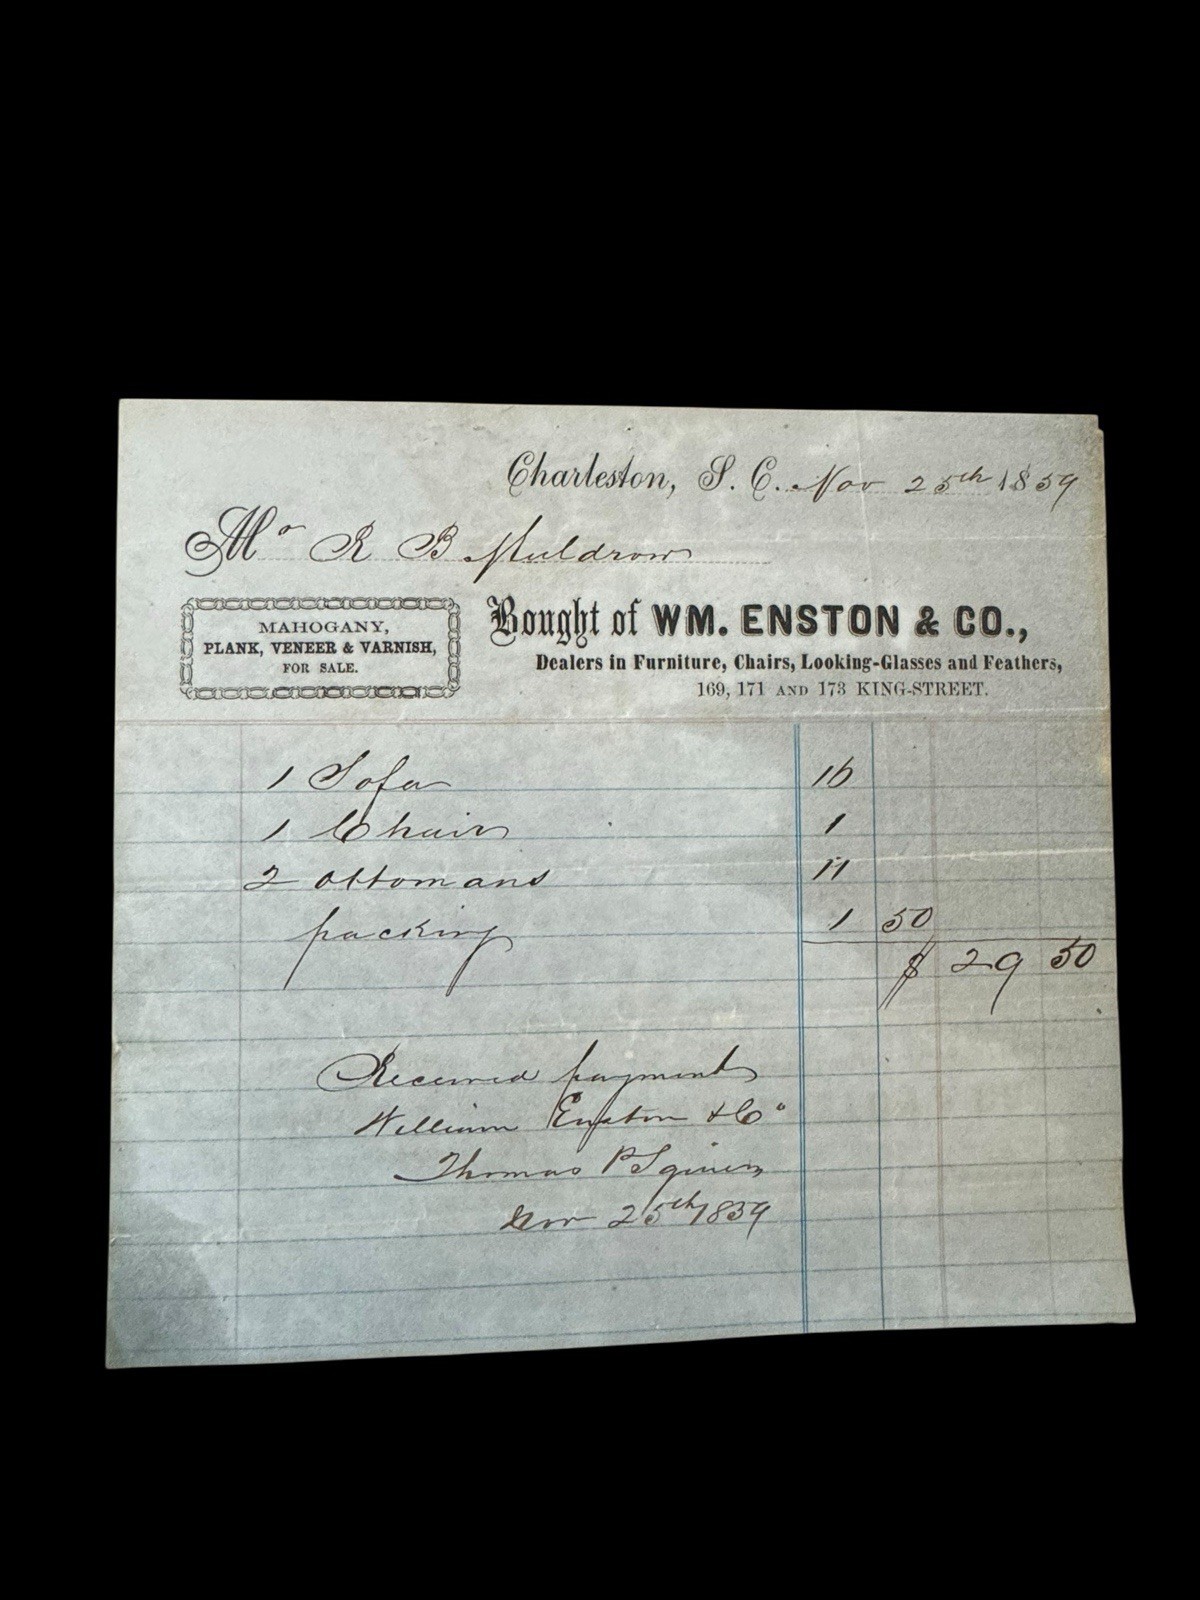 Charleston, S. C. Nov 25th 1859
Mr R B Muldrow
MAHOGANY,
PLANK, VENEER & VARNISH,
FOR SALE.
Bought of WM. ENSTON & CO.,
Dealers in Furniture, Chairs, Looking-Glasses and Feathers,
169, 171 AND 173 KING-STREET.
1 Sofa 16
1 Chair 1
2 ottomans 11
packing 1 50
$ 29 50
Received payment
William Enston & Co
Thomas P Squires
Nov 25th 1859